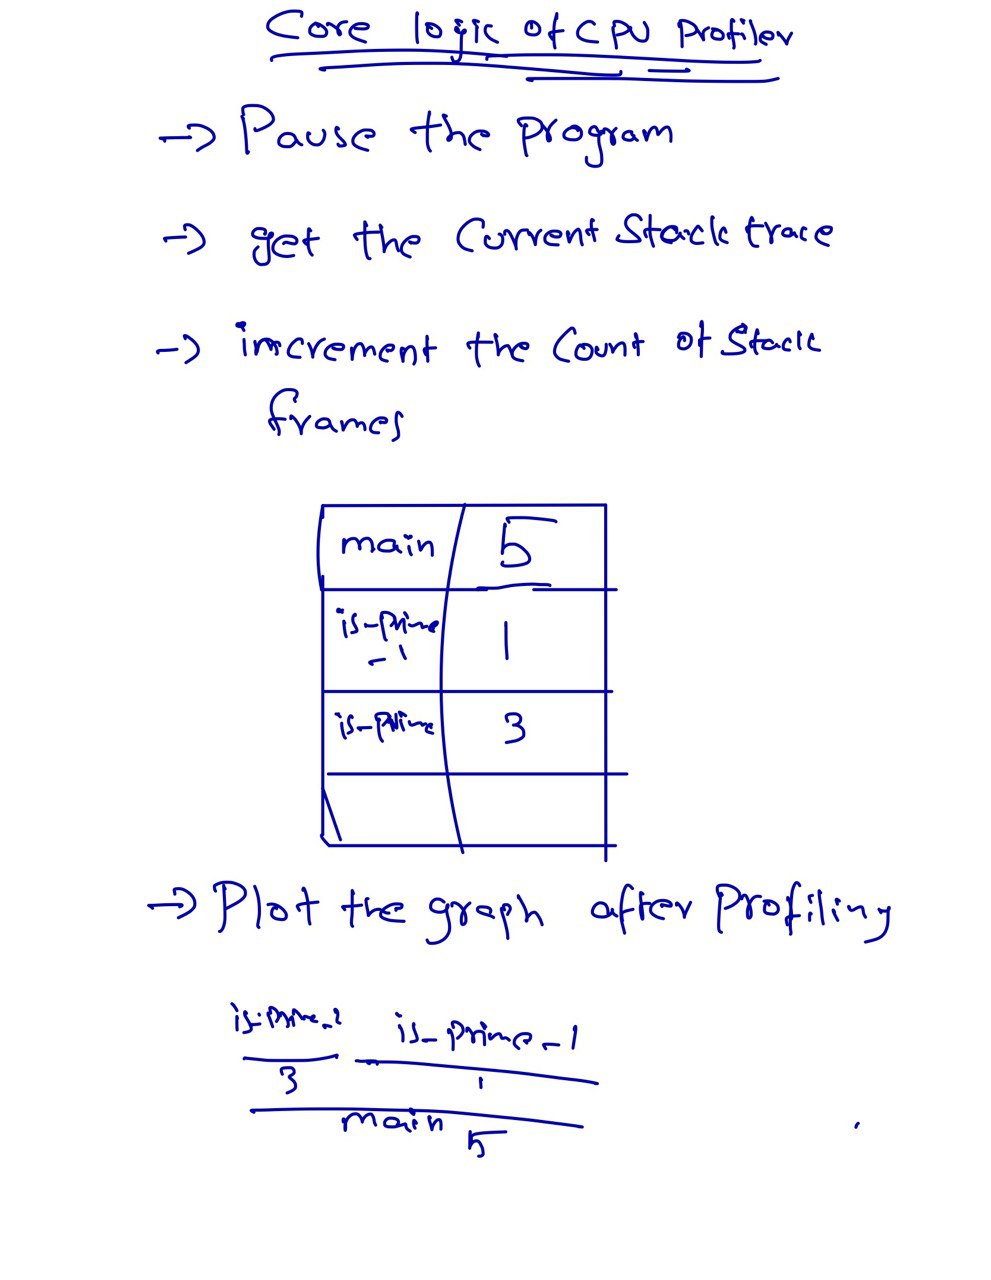 Core logic of CPU Profiler
→ Pause the program
→ get the Current Stack trace
→ increment the Count of Stack
frames
main 5
is-prime
-1 1
is-prime 3
→ Plot the graph after Profiling
is-prime-2 is-prime-1
3 1
main 5